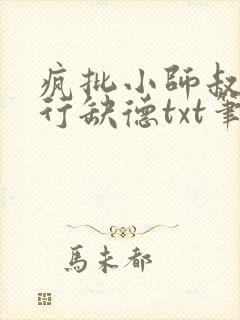 疯批小師叔
行缺德txt筆
馬未都